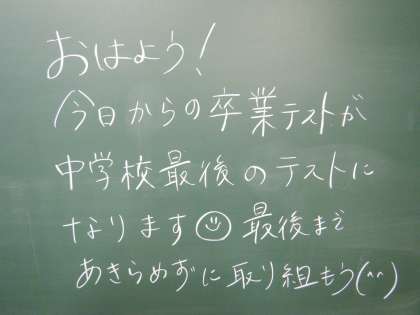 おはよう!
今日からの卒業テストが
中学校最後のテストに
なります☺ 最後まで
あきらめずに取り組もう(^^)